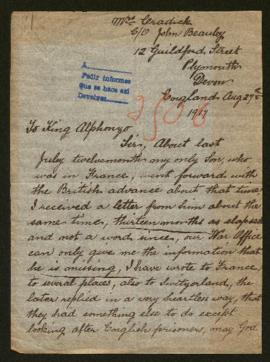 Mrs Cradick
C/O John Beasley
12 Guildford Street
Plymouth
Devon
England Aug 29th
1917
A
Pedir informes
Que se hace así
Devolver
To King Alphonzo
Sire, About last
July twelvemonth my only Son, who
was in France, went forward with
the British advance about that time
I received a letter from him about the
same time, thirteen months as elapsed
and not a word since, our War Office
can only give me the information that
he is missing, I have wrote to France,
to several places, also to Switzerland, the
later replied in a very heartless way, that
they had something else to do except
looking after English prisoners, may God